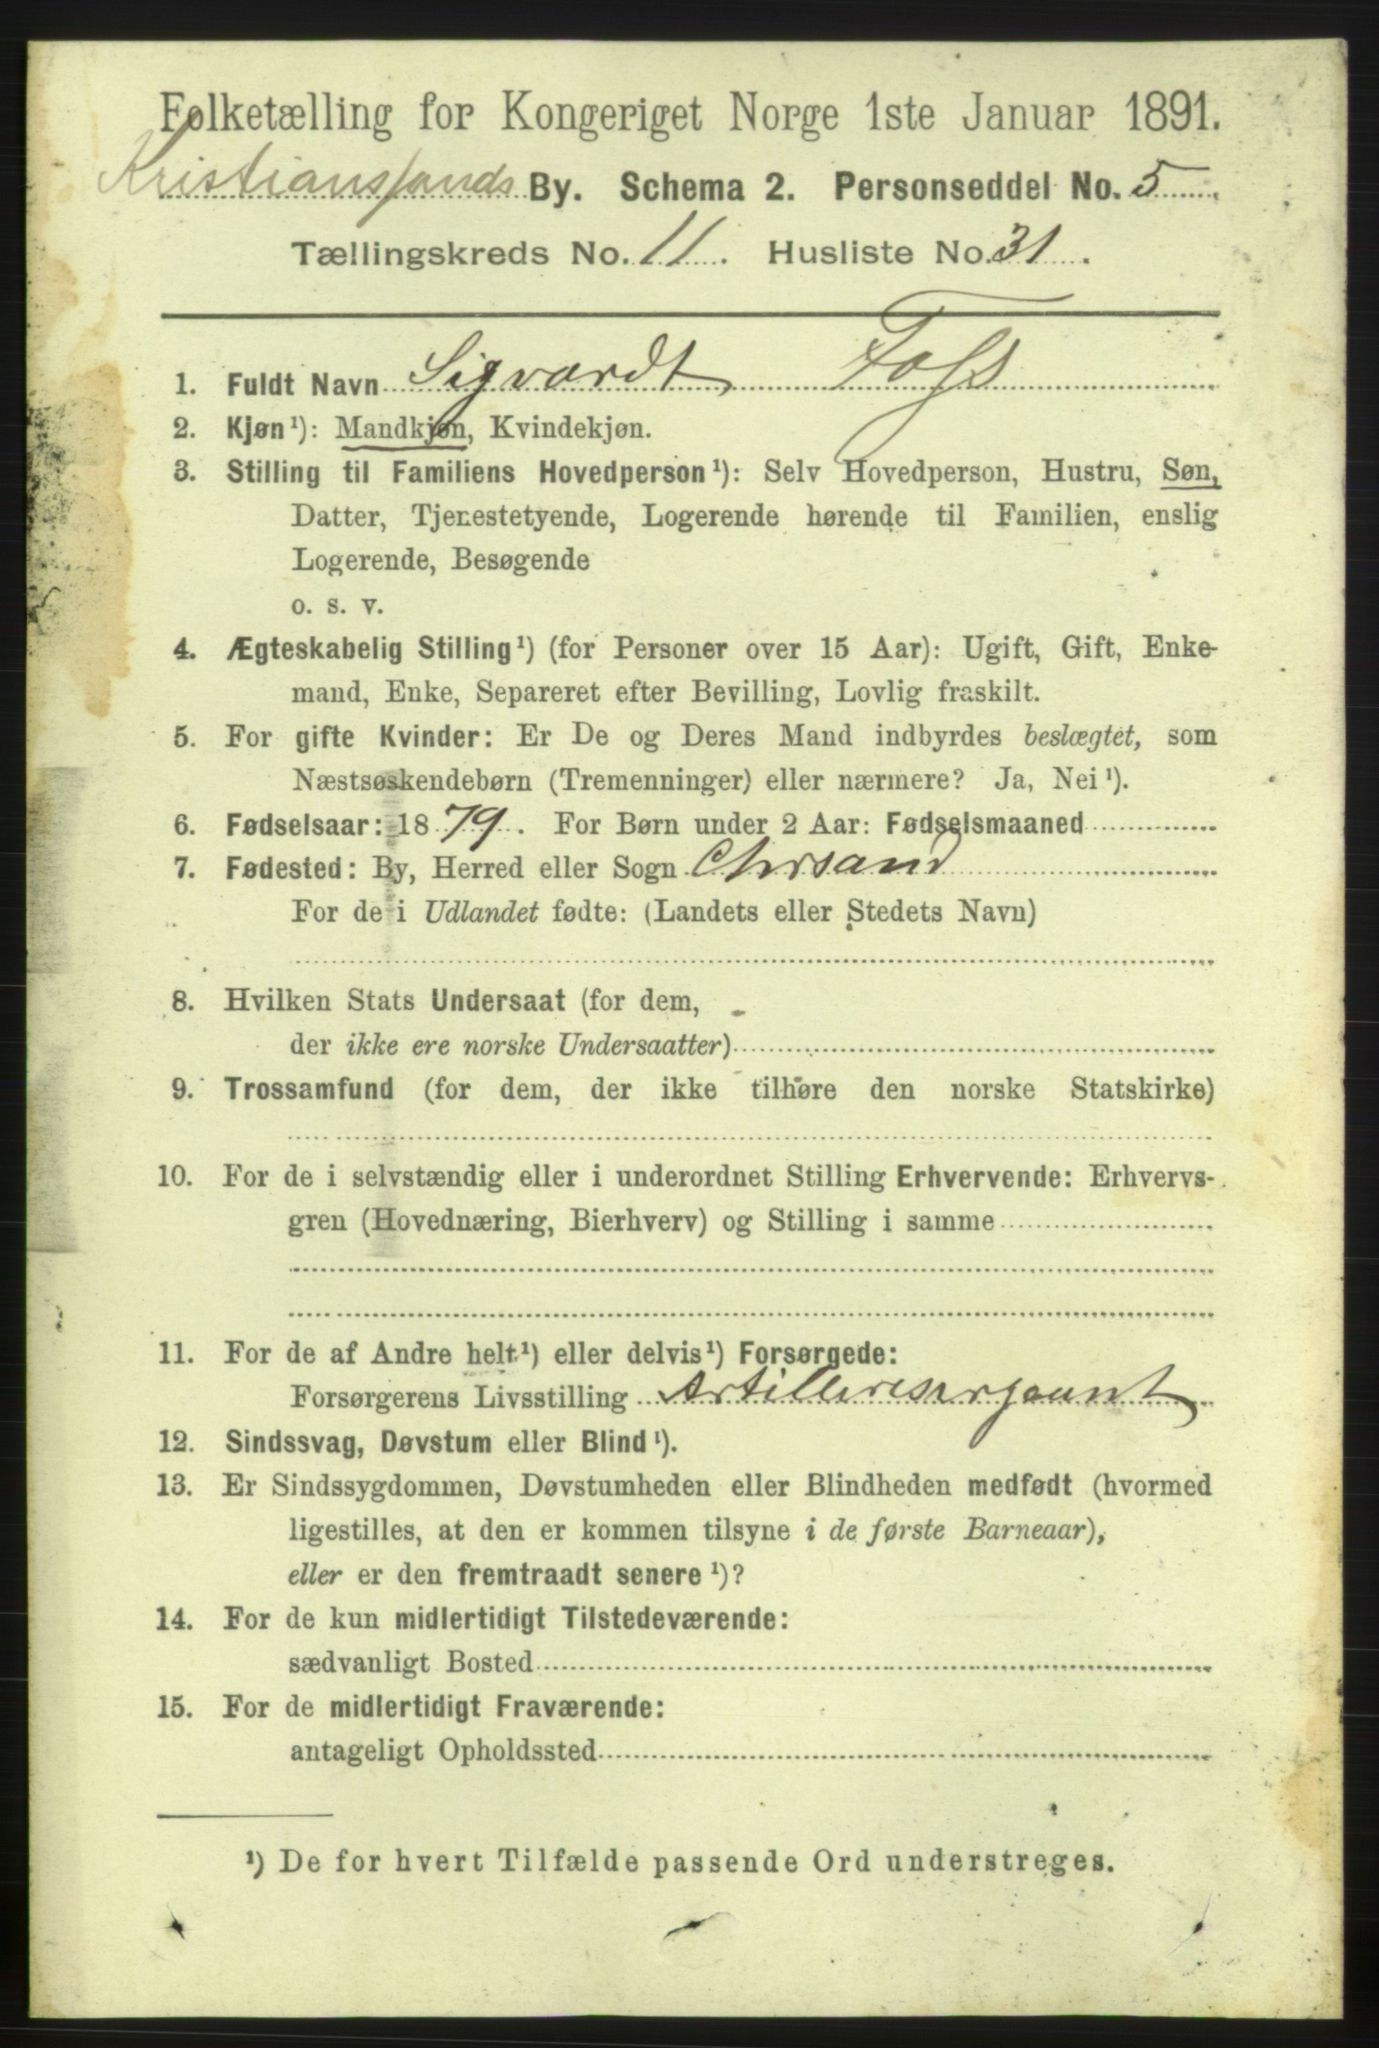 Folketælling for Kongeriget Norge 1ste Januar 1891.
Kristianssands By. Schema 2. Personseddel No. 5
Tællingskreds No. 11. Husliste No. 31.
1. Fuldt Navn Sigvardt Foss
2. Kjøn¹): Mandkjøn, Kvindekjøn.
3. Stilling til Familiens Hovedperson¹): Selv Hovedperson, Hustru, Søn,
Datter, Tjenestetyende, Logerende hørende til Familien, enslig
Logerende, Besøgende
o. s. v.
4. Ægteskabelig Stilling¹) (for Personer over 15 Aar): Ugift, Gift, Enke-
mand, Enke, Separeret efter Bevilling, Lovlig fraskilt.
5. For gifte Kvinder: Er De og Deres Mand indbyrdes beslægtet, som
Næstsøskendebørn (Tremenninger) eller nærmere? Ja, Nei¹).
6. Fødselsaar: 1879. For Børn under 2 Aar: Fødselsmaaned
7. Fødested: By, Herred eller Sogn Chrsand
For de i Udlandet fødte: (Landets eller Stedets Navn)
8. Hvilken Stats Undersaat (for dem,
der ikke ere norske Undersaatter)
9. Trossamfund (for dem, der ikke tilhøre den norske Statskirke)
10. For de i selvstændig eller i underordnet Stilling Erhvervende: Erhvervs-
gren (Hovednæring, Bierhverv) og Stilling i samme
11. For de af Andre helt¹) eller delvis¹) Forsørgede:
Forsørgerens Livsstilling Artillerisergeant
12. Sindssvag, Døvstum eller Blind¹).
13. Er Sindssygdommen, Døvstumheden eller Blindheden medfødt (hvormed
ligestilles, at den er kommen tilsyne i de første Barneaar),
eller er den fremtraadt senere¹)?
14. For de kun midlertidigt Tilstedeværende:
sædvanligt Bosted
15. For de midlertidigt Fraværende:
antageligt Opholdssted
¹) De for hvert Tilfælde passende Ord understreges.